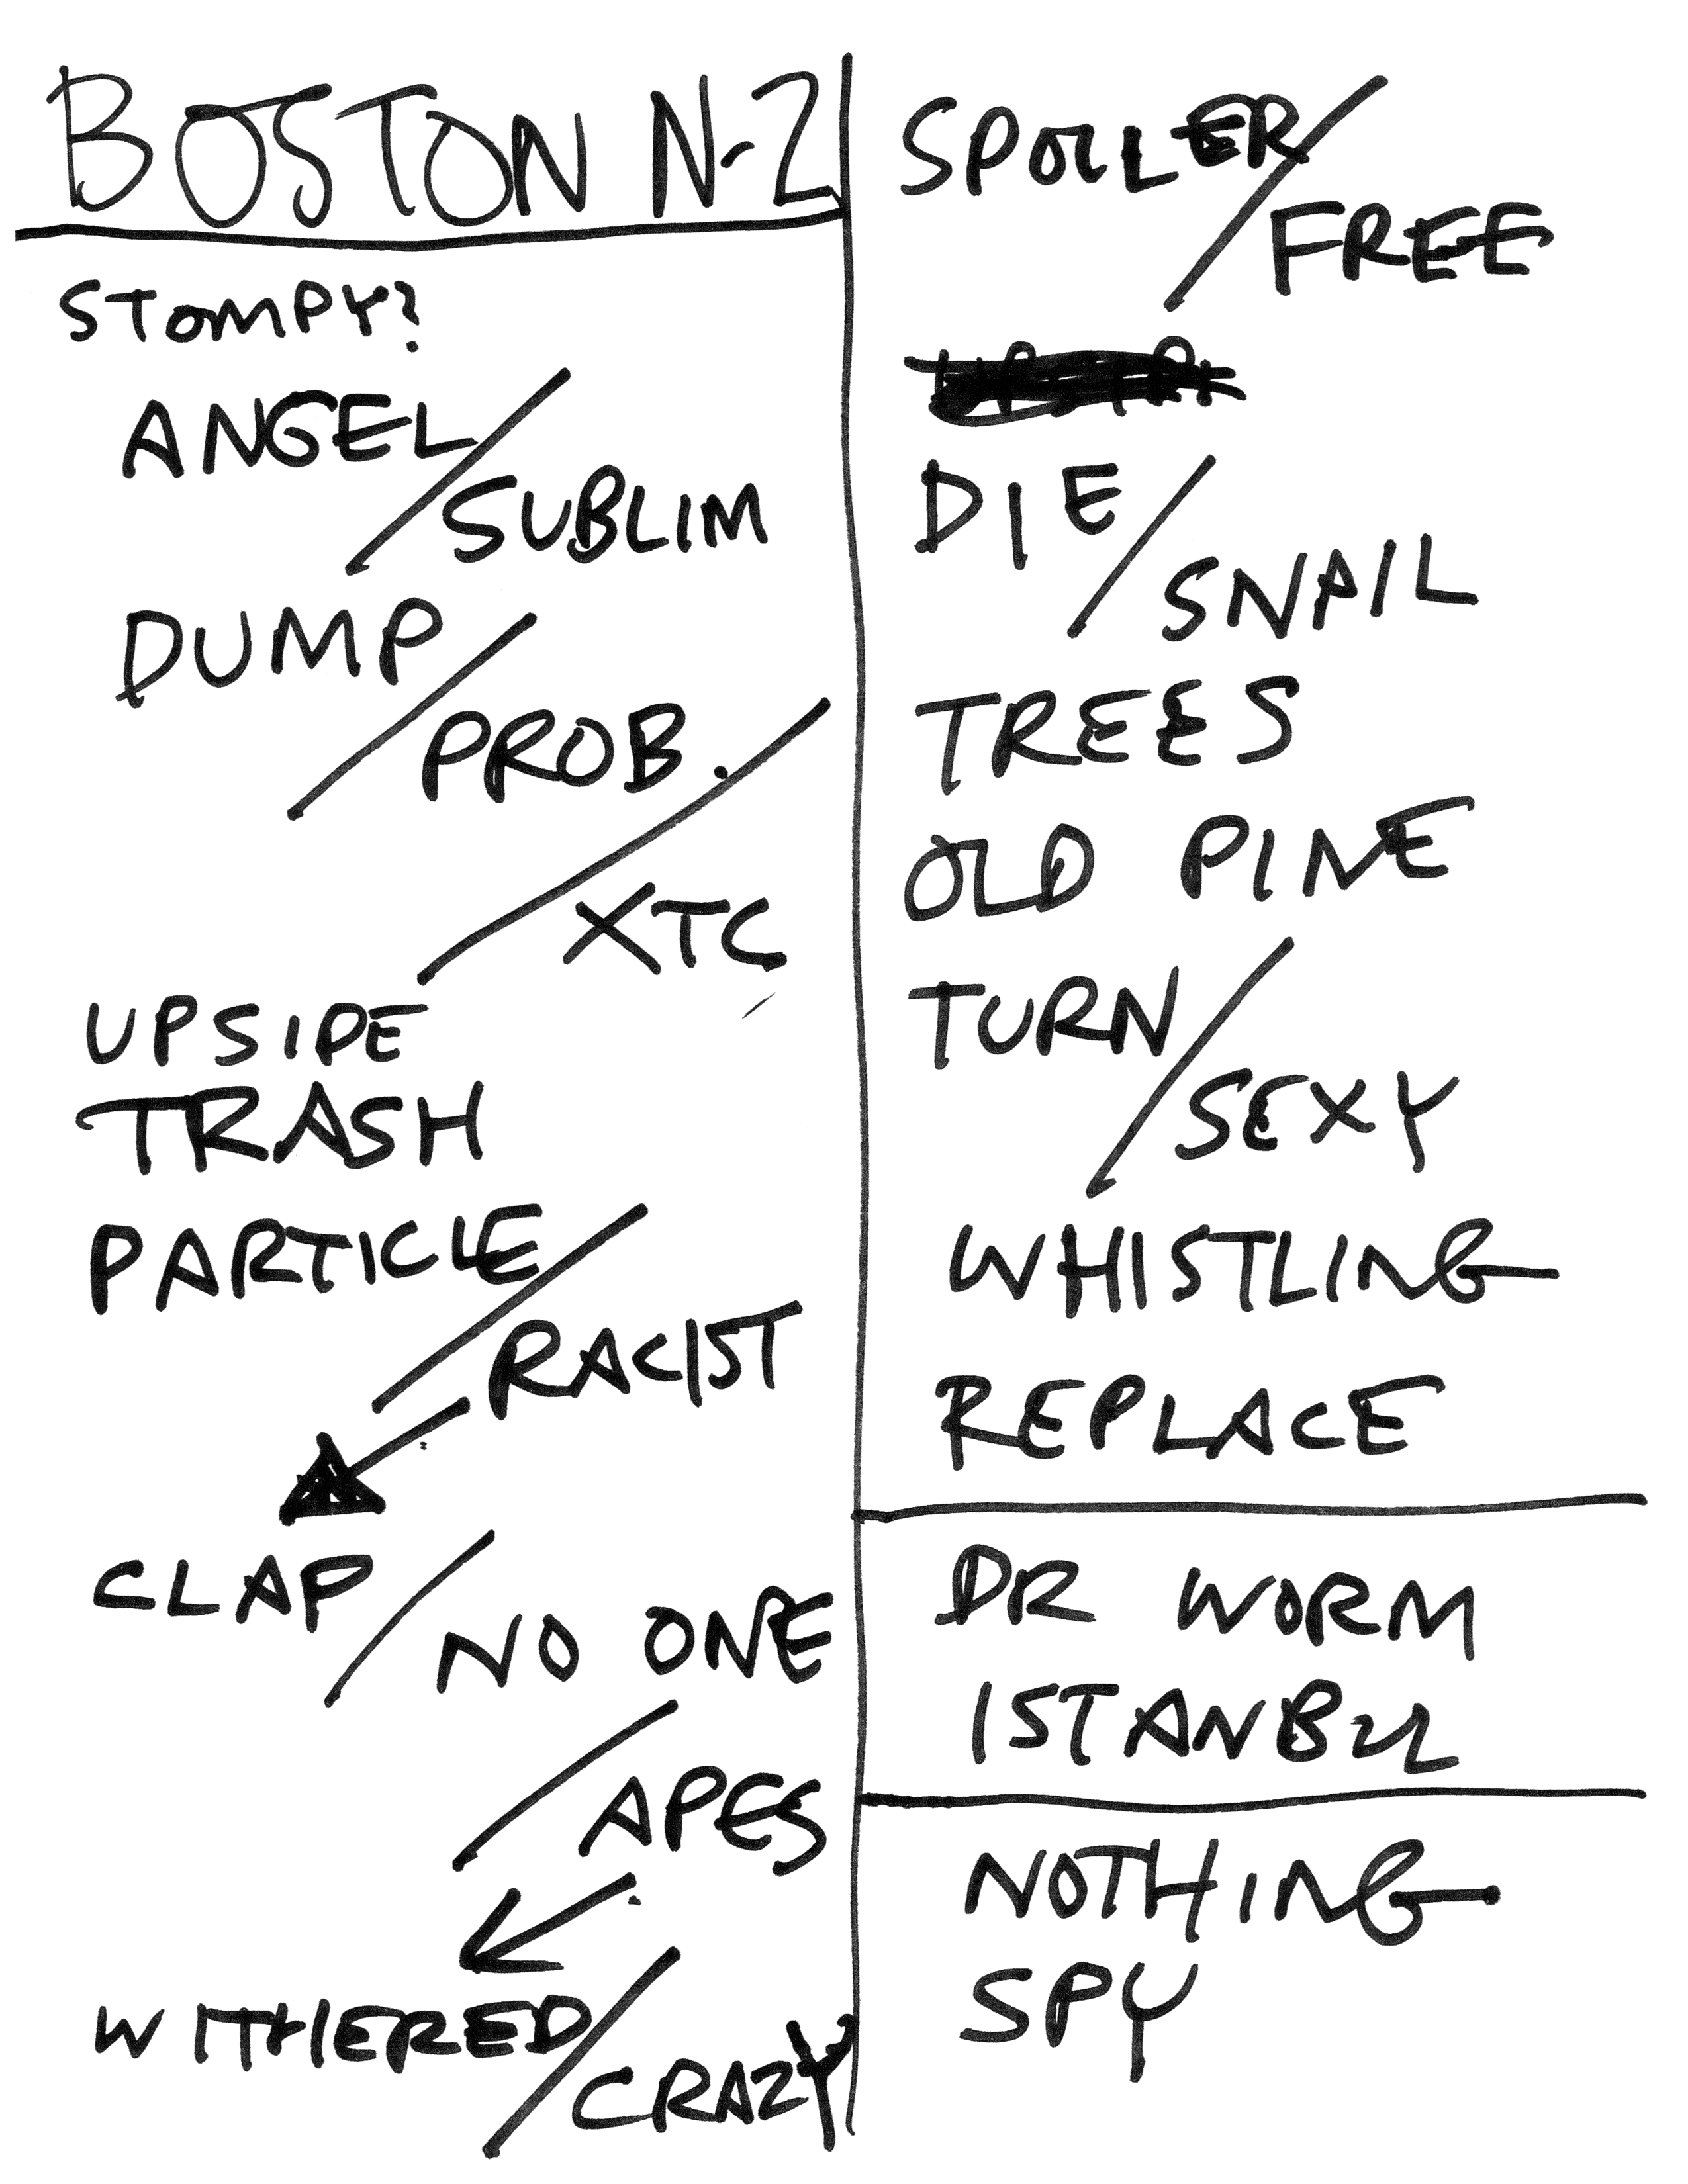 BOSTON N-2
STOMPY?
ANGEL/
SUBLIM
DUMP/
PROB./
XTC
UPSIDE
TRASH
PARTICLE/
RACIST
CLAP/
NO ONE
/APES
WITHERED/
CRAZY
SPOILER/
FREE
DIE/
SNAIL
TREES
OLD PINE
TURN/
SEXY
WHISTLING
REPLACE
DR WORM
ISTANBUL
NOTHING
SPY